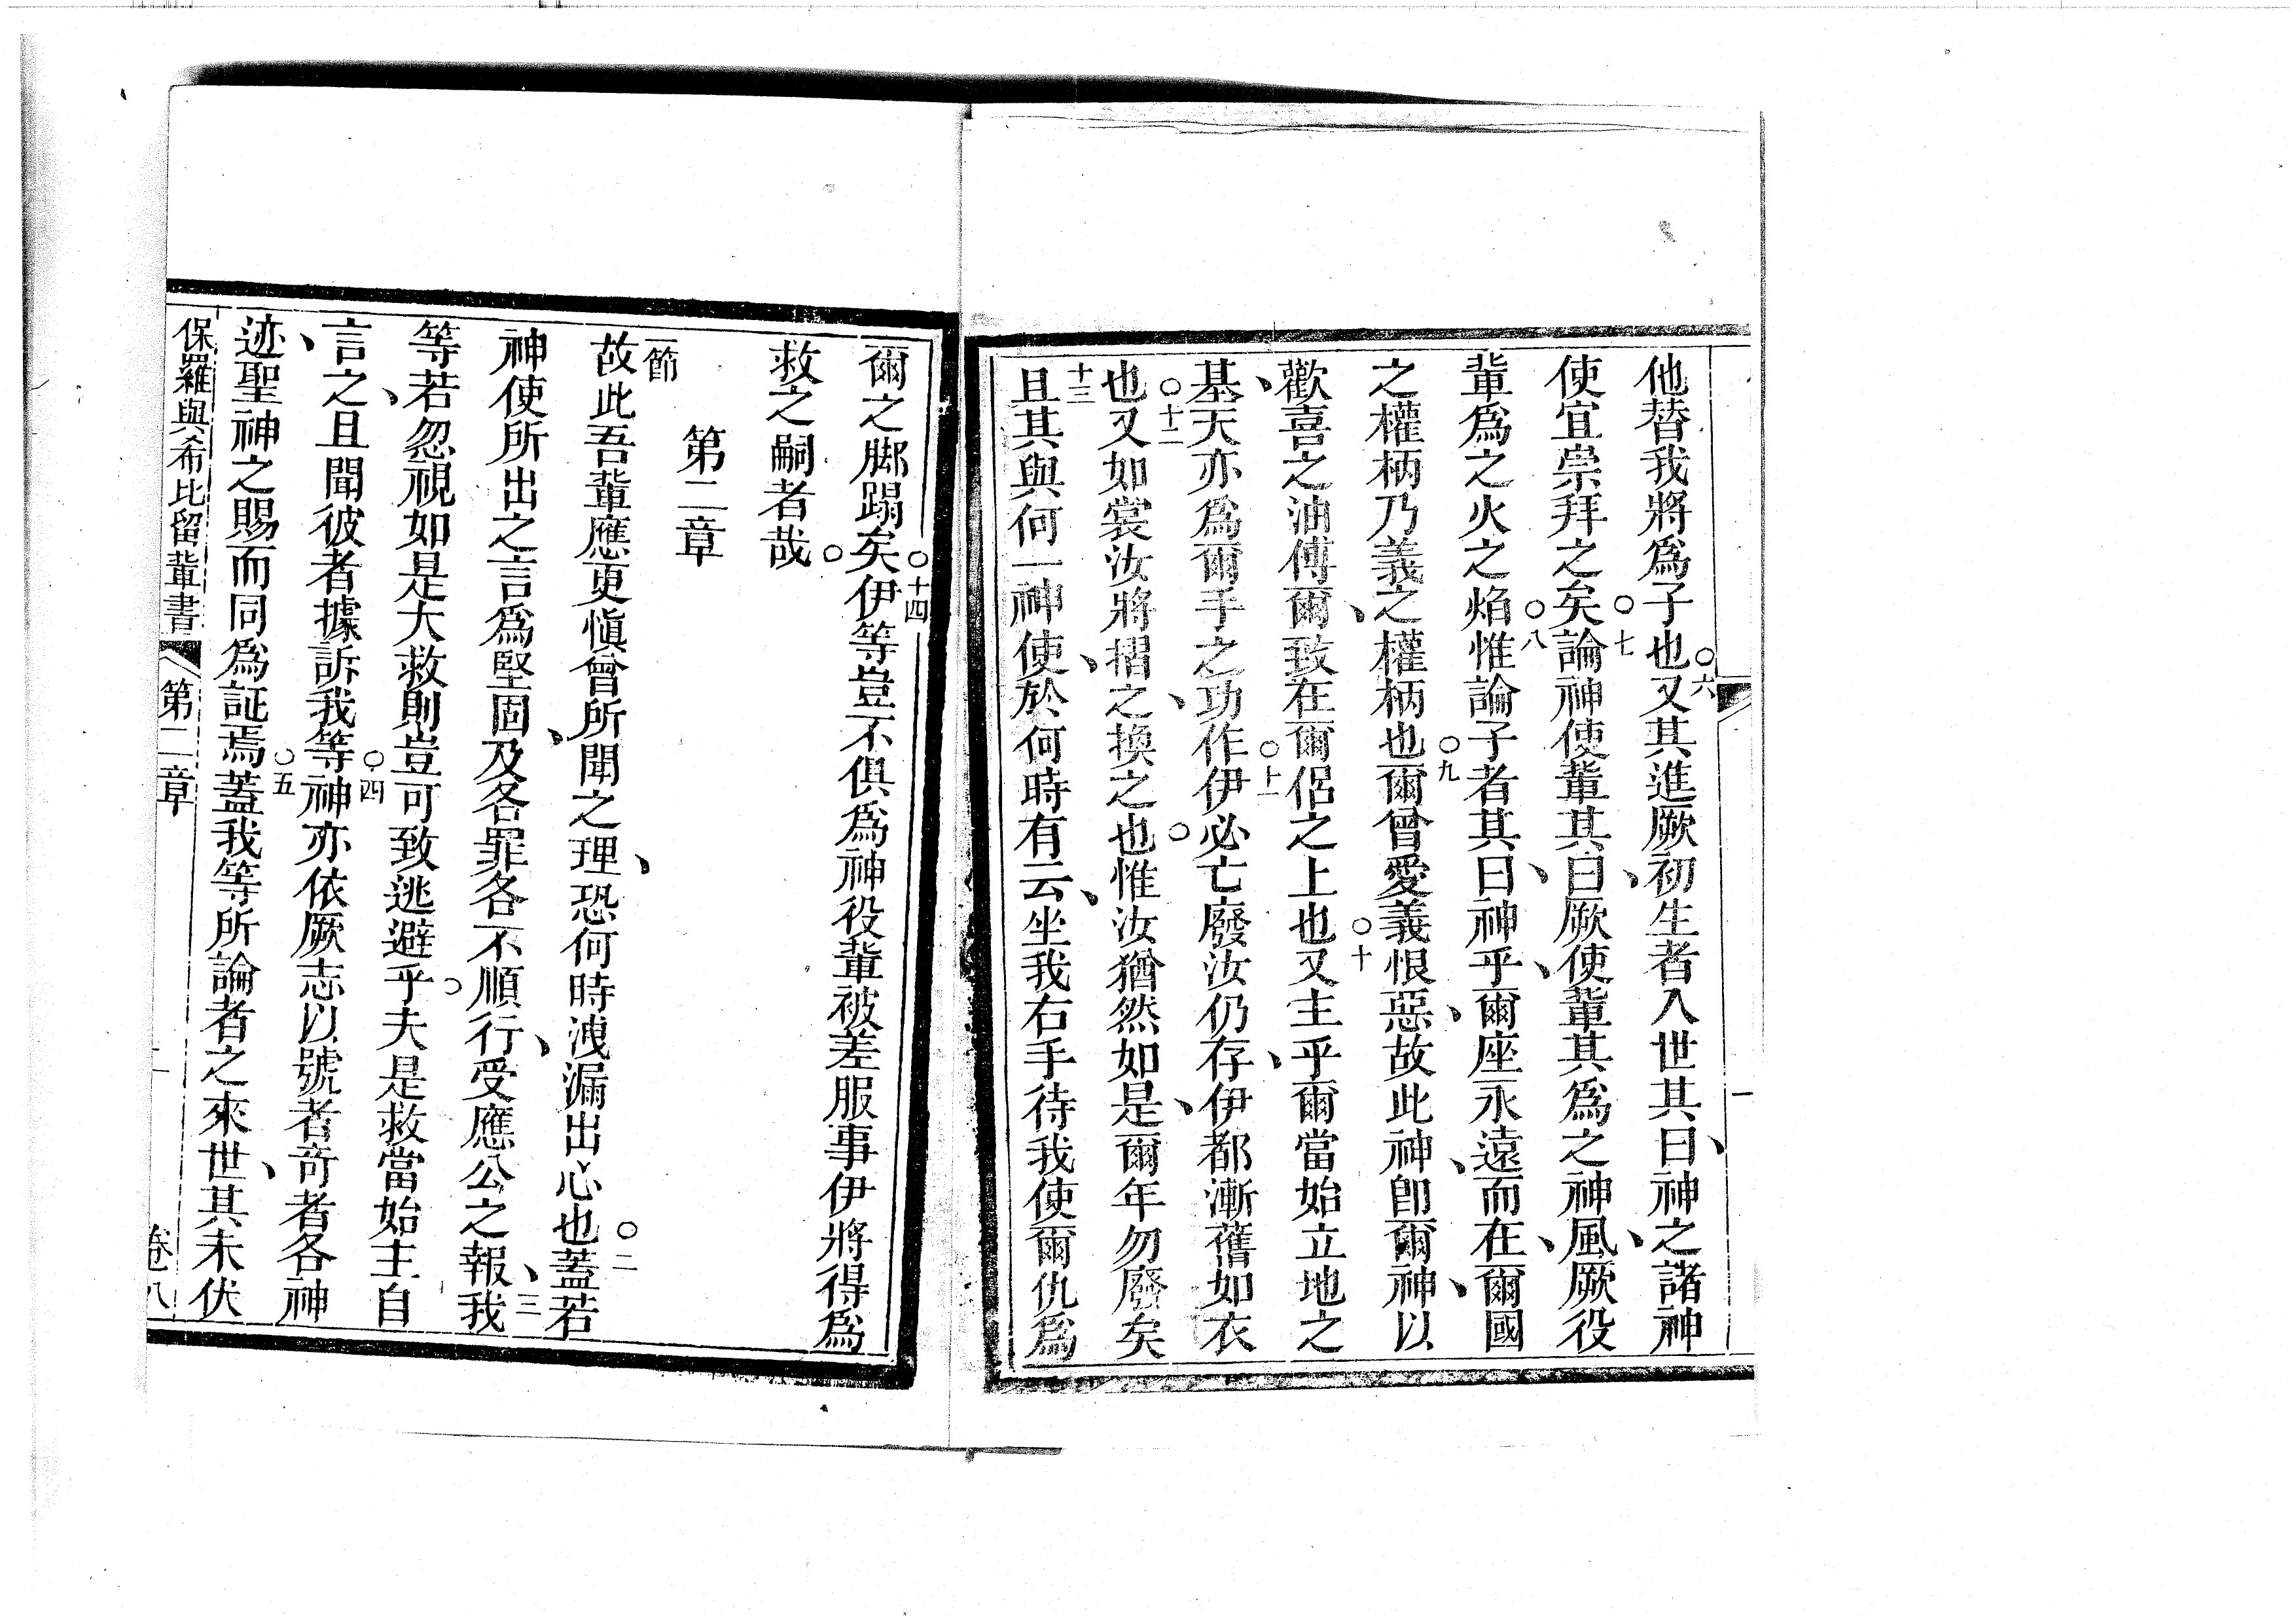 他替我將爲子也○六又其進厥初生者入世其曰、神之諸神
使宜崇拜之矣○七論神使輩其、曰厥使輩其爲之神風、厥役
輩爲之火之焰○八惟論子者其曰、神乎、爾座永遠而在、爾國
之權柄乃義之權柄也○九爾曾愛義恨惡、故此神、卽爾神、以
歡喜之油傅爾、致在爾侶之上也○十又主乎爾當始立地之
基、天亦爲爾手之功、作○十一伊必亡廢汝仍存、伊都漸舊如衣
也○十二又如裳汝將摺之換之也○惟汝猶然如是、爾年勿廢矣
十三且其與何一神使、於何時有云、坐我右手待我使爾仇爲
爾之脚蹋矣○十四伊等豈不俱爲神役輩被差服事伊將得爲
救之嗣者哉○
第二章
一節故此吾輩應更愼曾所聞之理、恐何時洩漏出心也○二蓋若
神使所出之言爲堅固、及各罪各不順行、受應公之報、三我
等、若忽視如是大救則豈可致逃避乎○夫是救當始主自
言、之且聞彼者據訴我等○四神亦依厥志以號者竒者各神
迹聖神之賜而同爲証焉○五蓋我等所論者之來世、其未伏
保羅與希比留輩書 第二章 二 卷八